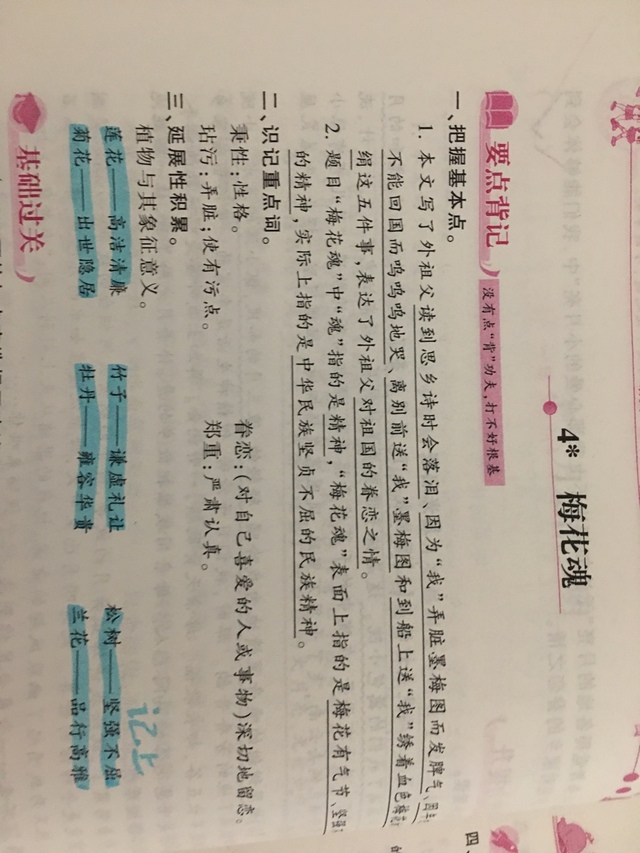 4* 梅花魂
要点背记
没有点“背”功夫,打不好根基
一、把握基本点。
1. 本文写了外祖父读到思乡诗时会落泪、因为“我”弄脏墨梅图而发脾气、
不能回国而呜呜呜地哭、离别前送“我”墨梅图和到船上送“我”绣着血色梅花
绢这五件事,表达了外祖父对祖国的眷恋之情。
2. 题目“梅花魂”中“魂”指的是精神,“梅花魂”表面上指的是梅花有气节、
的精神,实际上指的是中华民族坚贞不屈的民族精神。
二、识记重点词。
秉性:性格。 眷恋:(对自己喜爱的人或事物)深切地留恋。
玷污:弄脏;使有污点。 郑重:严肃认真。
三、延展性积累。
植物与其象征意义。
记上
莲花——高洁清廉 竹子——谦虚礼让 松树——坚强不屈
菊花——出世隐居 牡丹——雍容华贵 兰花——品行高雅
基础过关
四、
的